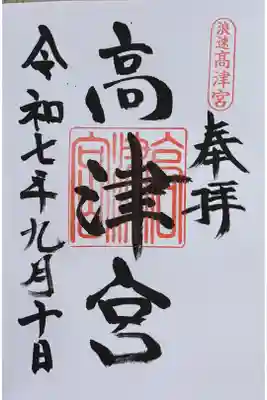 浪速高津宮
奉拝
高津宮
高津宮印
令和七年九月十日